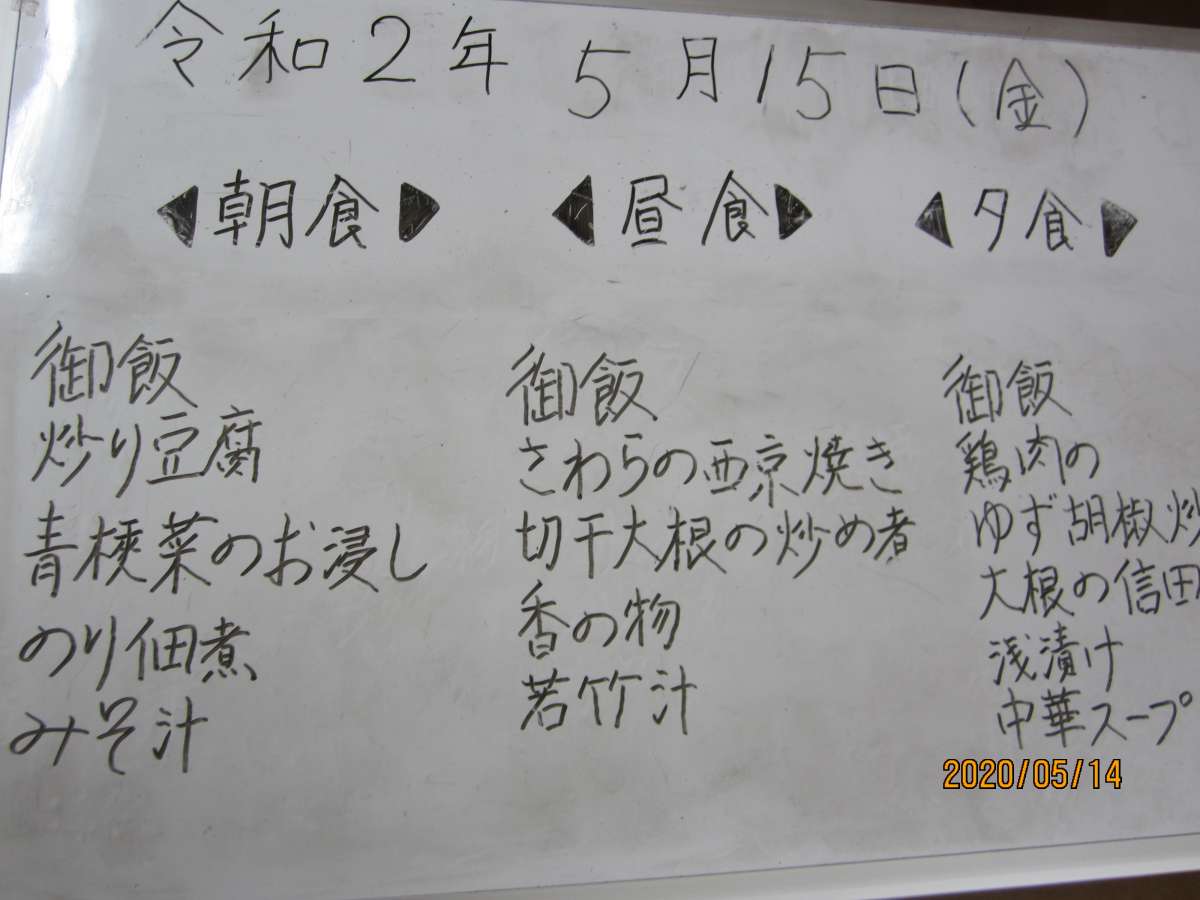 令和2年 5月15日(金)
◀朝食▶
御飯
炒り豆腐
青梗菜のお浸し
のり佃煮
みそ汁
◀昼食▶
御飯
さわらの西京焼き
切干大根の炒め煮
香の物
若竹汁
◀夕食▶
御飯
鶏肉の
ゆず胡椒炒
大根の信田
浅漬け
中華スープ
2020/05/14